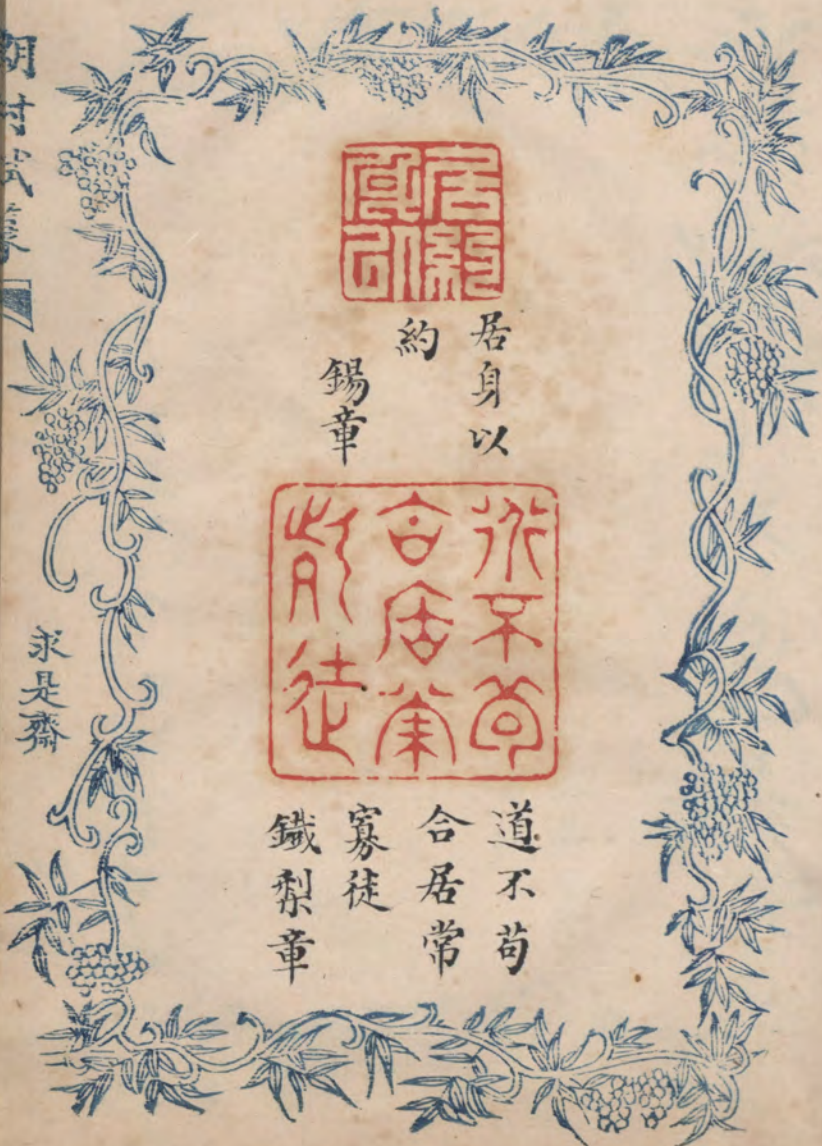 居身以約
居身以
約
錫章
道不苟
合居常
寡徒
道不苟
合居常
寡徒
鐵梨章
求是齋